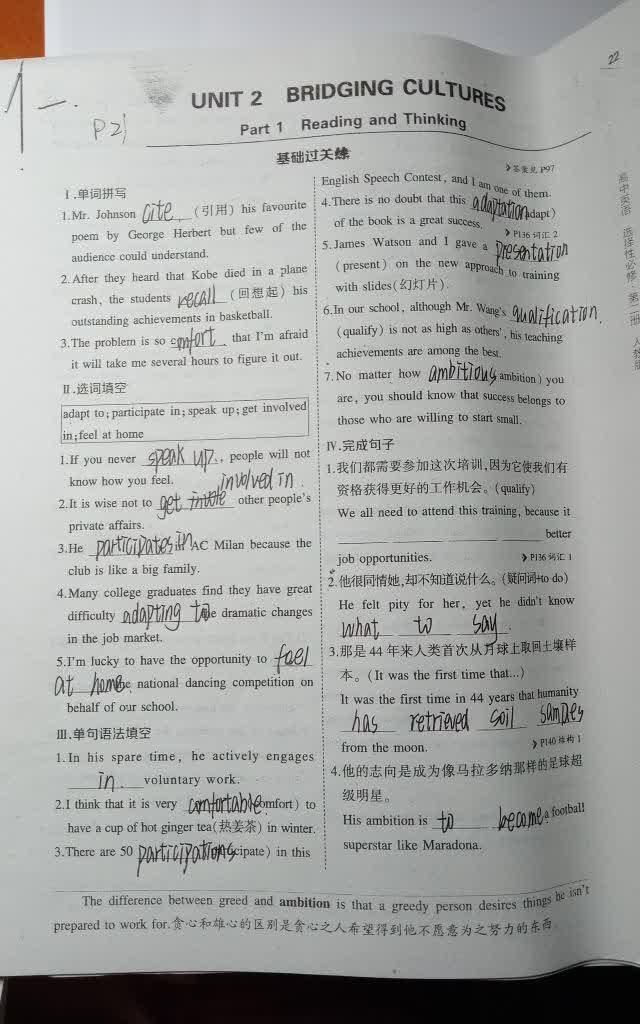 22
1 一.
P21
UNIT 2 BRIDGING CULTURES
Part 1 Reading and Thinking
基础过关练
答案见 P97
Ⅰ.单词拼写
1.Mr. Johnson cite (引用) his favourite
poem by George Herbert but few of the
audience could understand.
2.After they heard that Kobe died in a plane
crash, the students recall (回想起) his
outstanding achievements in basketball.
3.The problem is so comfort that I'm afraid
it will take me several hours to figure it out.
Ⅱ.选词填空
adapt to; participate in; speak up; get involved
in; feel at home
1.If you never speak up, people will not
know how you feel. involved in
2.It is wise not to get other people's
private affairs.
3.He participates in AC Milan because the
club is like a big family.
4.Many college graduates find they have great
difficulty adapting to the dramatic changes
in the job market.
5.I'm lucky to have the opportunity to feel
at home national dancing competition on
behalf of our school.
Ⅲ.单句语法填空
1.In his spare time, he actively engages
in voluntary work.
2.I think that it is very comfortable (comfort) to
have a cup of hot ginger tea(热姜茶) in winter.
3.There are 50 participations cipate) in this
English Speech Contest, and I am one of them.
4.There is no doubt that this adaptation adapt)
of the book is a great success.
P136 词汇 2
5.James Watson and I gave a presentation
(present) on the new approach to training
with slides(幻灯片).
6.In our school, although Mr. Wang's qualification.
(qualify) is not as high as others', his teaching
achievements are among the best.
7.No matter how ambitious ambition) you
are, you should know that success belongs to
those who are willing to start small.
Ⅳ.完成句子
1.我们都需要参加这次培训,因为它使我们有
资格获得更好的工作机会。(qualify)
We all need to attend this training, because it
better
job opportunities.
P136 词汇 1
2.他很同情她,却不知道说什么。(疑问词+to do)
He felt pity for her, yet he didn't know
what to say.
3.那是 44 年来人类首次从月球上取回土壤样
本。(It was the first time that...)
It was the first time in 44 years that humanity
has retrieved soil
from the moon.
P140 结构 1
4.他的志向是成为像马拉多纳那样的足球超
级明星。
His ambition is to become a football
superstar like Maradona.
The difference between greed and ambition is that a greedy person desires things he isn't
prepared to work for.贪心和雄心的区别是贪心之人希望得到他不愿意为之努力的东西.
高中英语 选择性必修·第二册 人教版